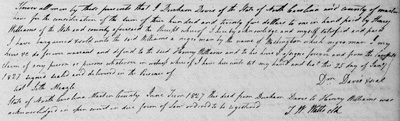 Know all men by these presents that I Durham Davis of the State of North Carolina and County of Martin
have for the consideration of the sum of three hundred and twenty five dollars to me in hand paid by Henry
Williams of the State and County aforesaid the receipt whereof I do hereby acknowledge and myself satisfied and paid
I have bargained sold unto the said Williams a negro man by the name of Washington which negro man I my
heirs do for ever warrant and defend to the said Henry Williams and to his heirs &c for ever and from the
claims of any person or persons whatever in witness whereof I have hereunto set my hand and seal this 25 day of Jany
1827 signed sealed and delivered in the presence of
Dm Davis seal
State of North Carolina Martin County June Term 1827 this deed from Durham Davis to Henry Williams was
acknowledged in open court in due form of law ordered to be registered